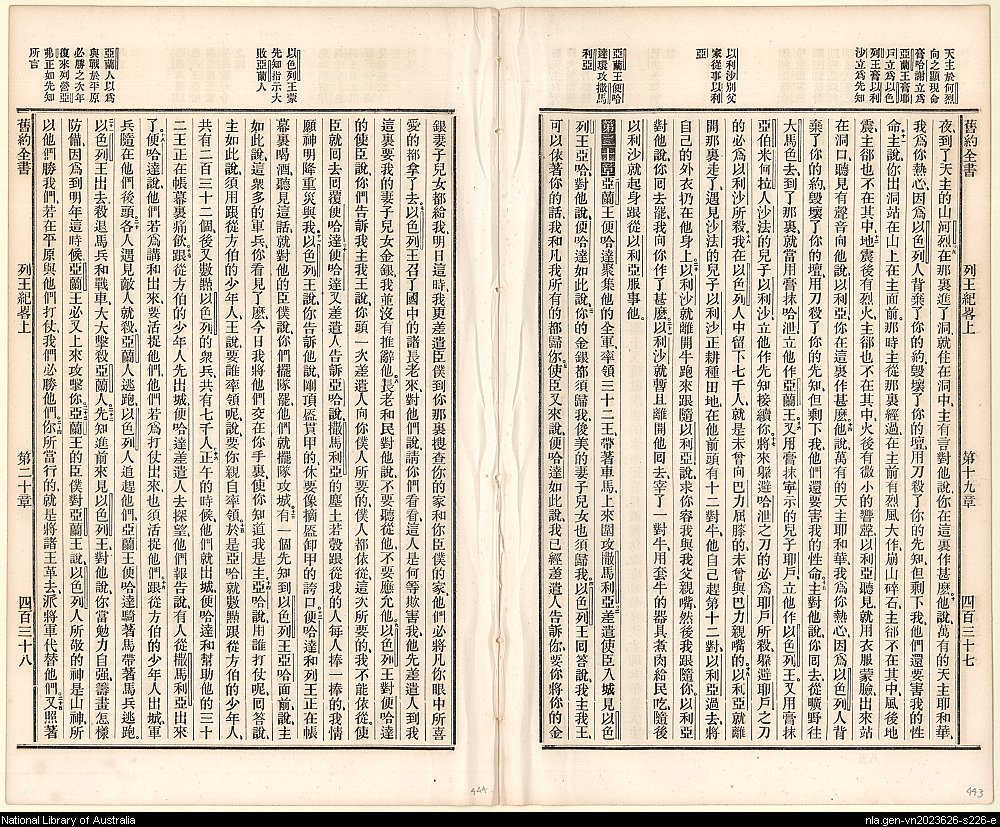 天主於何烈
向之顯現命
膏哈謝立爲
亞蘭王膏耶
戶立爲以色
列王膏以利
沙立爲先知
以利沙別父
家從事以利
亞
亞蘭王便哈
達環攻撒馬
利亞
舊約全書 列王紀畧上 第十九章 四百三十七
夜、到了天主的山何烈、在那裏進了洞、就住在洞中、主有言對他說、你在這裏作甚麼、他說、萬有的天主耶和華、
我爲你熱心、因爲以色列人背棄了你的約、毀壞了你的壇、用刀殺了你的先知、但剩下我、他們還要害我的性
命、主說、你出洞站在山上、在主面前、那時主從那裏經過、在主前有烈風大作、崩山碎石、主却不在其中、風後地
震、主却也不在其中、地震後有烈火、主却也不在其中、火後有微小的響聲、以利亞聽見、就用衣服蒙臉、出來站
在洞口、聽見有聲音向他說、以利亞、你在這裏作甚麼、他說、萬有的天主耶和華、我爲你熱心、因爲以色列人背
棄了你的約、毀壞了你的壇、用刀殺了你的先知、但剩下我、他們還要害我的性命、主對他說、你回去從曠野往
大馬色去、到了那裏、就當用膏抹哈泄立他作亞蘭王、又用膏抹寧示的兒子耶戶、立他作以色列王、又用膏抹
亞伯米何拉人沙法的兒子以利沙、立他作先知接續你、將來躱避哈泄之刀的、必爲耶戶所殺、躱避耶戶之刀
的、必爲以利沙所殺、我在以色列人中留下七千人、就是未曾向巴力屈膝的、未曾與巴力親嘴的、以利亞就離
開那裏走了、遇見沙法的兒子以利沙正耕種田地、在他前頭有十二對牛、他自己趕第十二對、以利亞過去、將
自己的外衣扔在他身上、以利沙就離開牛、跑來跟隨以利亞、說、求你容我與我父親嘴、然後我跟隨你、以利亞
對他說、你回去罷、我向你作了甚麼、以利沙就暫且離開他回去、宰了一對牛、用套牛的器具煮肉給民吃、隨後
以利沙就起身跟從以利亞服事他、
第二十章 亞蘭王便哈達聚集他的全軍、率領三十二王、帶著車馬、上來圍攻撒馬利亞、差遣使臣入城、見以色
列王亞哈、對他說、便哈達如此說、你的金銀都須歸我、你俊美的妻子兒女也須歸我、以色列王回答說、我主我王、
可以依著你的話、我和凡我所有的都歸你、使臣又來說、便哈達如此說、我已經差遣人告訴你、要你將你的金
以色列王蒙
先知指示大
敗亞蘭人
亞蘭人以爲
與戰於平原
必勝之次年
復來列營亞
弗正如先知
所言
銀妻子兒女都給我、明日這時、我更差遣臣僕到你那裏、搜查你的家和你臣僕的家、他們必將凡你眼中所喜
愛的都拿了去、以色列王召了國中的諸長老來、對他們說、請你們看看、這人是何等欺害我、他先差遣人到我
這裏、要我的妻子兒女金銀、我並沒有推辭他、長老和民對他說、不要聽從他、不要應允他、以色列王對便哈達
的使臣說、你們告訴我主我王說、你頭一次差遣人向你僕人所要的、僕人都依從、這次所要的、我不能依從、使
臣就回去回覆便哈達、便哈達又差遣人告訴亞哈說、撒馬利亞的塵土、若彀跟從我的人每人捧一捧的、我情
願神明降重災與我、以色列王說、你告訴他說、剛頂盔貫甲的、休要像摘盔卸甲的誇口、便哈達和列王正在帳
幕裏喝酒、聽見這話、就對他的臣僕說、你們擺隊罷、他們就擺隊攻城、有一個先知到以色列王亞哈面前說、主
如此說、這衆多的軍兵你看見了麼、今日我將他們交在你手裏、使你知道我是主、亞哈說、用誰打仗呢、回答說、
主如此說、須用跟從方伯的少年人、王說、要誰率領呢、說、要你親自率領、於是亞哈就數點跟從方伯的少年人、
共有二百三十二個、後又數點以色列的衆兵、共有七千人、正午的時候、他們就出城、便哈達和幫助他的三十
二王、正在帳幕裏痛飲、跟從方伯的少年人先出城、便哈達差遣人去探望、他們報告說、有人從撒馬利亞出來
了、便哈達說、他們若爲講和出來、要活捉他們、他們若爲打仗出來、也須活捉他們、跟從方伯的少年人出城、軍
兵隨在他們後頭、各人遇見敵人就殺、亞蘭人逃跑、以色列人追趕他們、亞蘭王便哈達騎著馬、帶著馬兵逃跑、
以色列王出去殺退馬兵和戰車、大大擊殺亞蘭人、先知進前來見以色列王、對他說、你當勉力自强、籌畫怎樣
防備、因爲到明年這時候、亞蘭王必又上來攻擊你、亞蘭王的臣僕對亞蘭王說、以色列人所敬的神是山神、所
以他們勝我們、若在平原與他們打仗、我們必勝他們、你所當行的、就是將諸王革去、派將軍代替他們、又照著
舊約全書 列王紀畧上 第二十章 四百三十八
444
443
National Library of Australia
nla.gen-vn2023626-s226-e